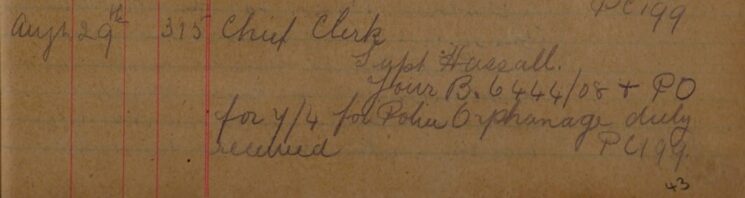 PC 199
Augt 29th 315 Chief Clerk
Supt Hassall.
Your B. 6444/08 + PO
for 7/4 for Police Orphanage duly
received PC 199.
43